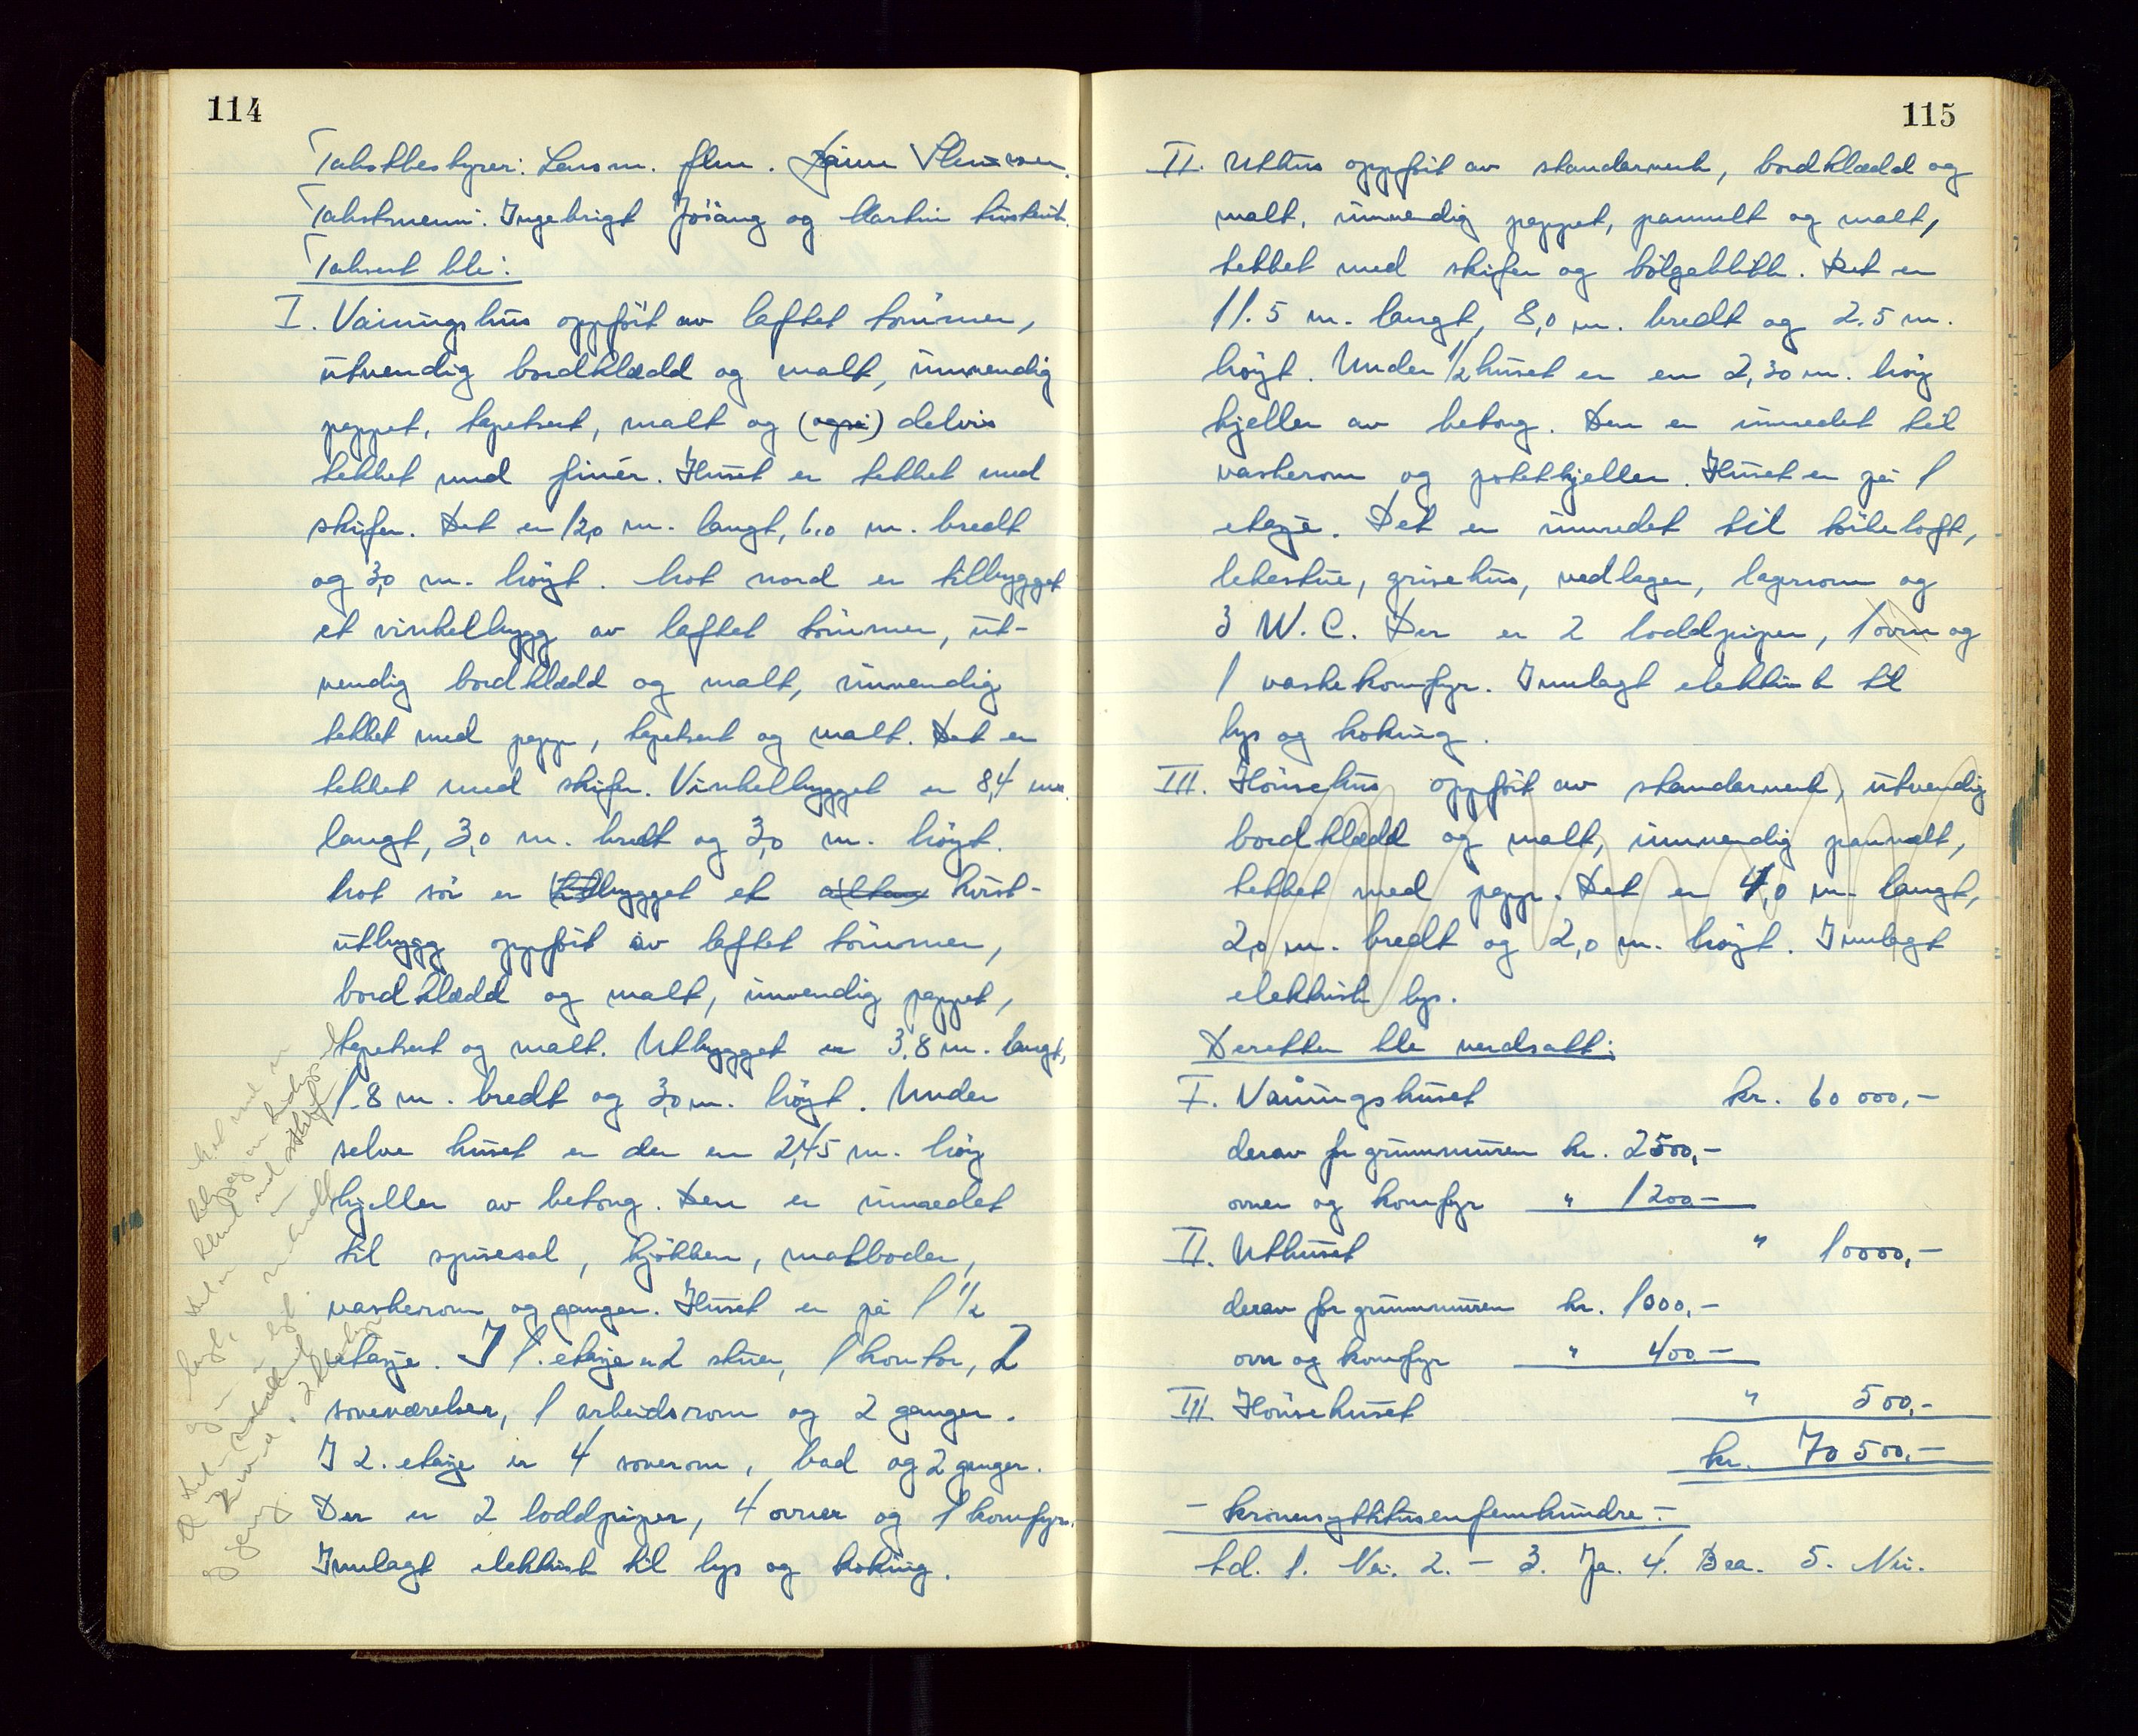 114
Takstbestyrer: Lensm. flm.
Takstmenn: Ingebrigt Jösang og Martin
Taksert ble:
I. Våningshus oppfört av laftet tömmer,
utvendig bordklædd og malt, innvendig
pappet, tapetsert, malt og (også) delvis
tekket med finér. Huset er tekket med
skifer. Det er 12,0 m. langt, 6.0 m. bredt
og 3,0 m. höyt. Mot nord er tilbygget
et vinkelbygg av laftet tömmer, ut-
vendig bordklædd og malt, innvendig
tekket med papp, tapetsert og malt. Det er
tekket med skifer. Vinkelbygget er 8,4 m.
langt, 3,0 m. bredt og 3,0 m. höyt.
Mot sör er tilbygget et altan kvist-
utbygg oppfört av laftet tömmer,
bordklædd og malt, innvendig pappet,
tapetsert og malt. Utbygget er 3.8 m. langt,
1.8 m. bredt og 3,0 m. höyt. Under
selve huset er der en 2,45 m. höy
kjeller av betong. Den er innredet
til spisesal, kjökken, matboder,
vaskerom og ganger. Huset er på 1 1/2
etasje. I 1. etasje er 2 stuer, 1 kontor, 2
soveværelser, 1 arbeidsrom og 2 ganger.
I 2. etasje er 4 soverom, bad og 2 ganger.
Der er 2 loddpiper, 4 ovner og 1 komfyr.
Innlagt elektrisk til lys og koking.
115
II. Uthus oppfört av standerverk, bordklædd og
malt, innvendig pappet, panult og malt,
tekket med skifer og bölgeblikk. Det er
11.5 m. langt, 8,0 m. bredt og 2.5 m.
höyt. Under 1/2 huset er en 2,30 m. höy
kjeller av betong. Den er innredet til
vaskerom og potetkjeller. Huset er på 1
etasje. Det er innredet til törkeloft,
lekestue, grisehus, vedlager, lagerrom og
3 W.C. Der er 2 loddpiper, 1 ovn og
1 vaskekomfyr. Innlagt elektrisk til
lys og koking.
III. Hönsehus oppfört av standerverk, utvendig
bordklædd og malt, innvendig panualt,
tekket med papp. Det er 4,0 m. langt,
2,0 m. bredt og 2,0 m. höyt. Innlagt
elektrisk lys.
Deretter ble verdsatt:
I. Våningshuset kr. 60 000,-
derav for grunnmuren kr. 2500,-
ovner og komfyr " 1200-
II. Uthuset " 10000,-
derav for grunnmuren kr. 1000,-
ovn og komfyr " 400-
III. Hönsehuset " 500,-
kr. 70 500,-
- kronersyttitusenfemhundre -
td. 1. Nei. 2. - 3. Ja. 4. Bra. 5. Nei.